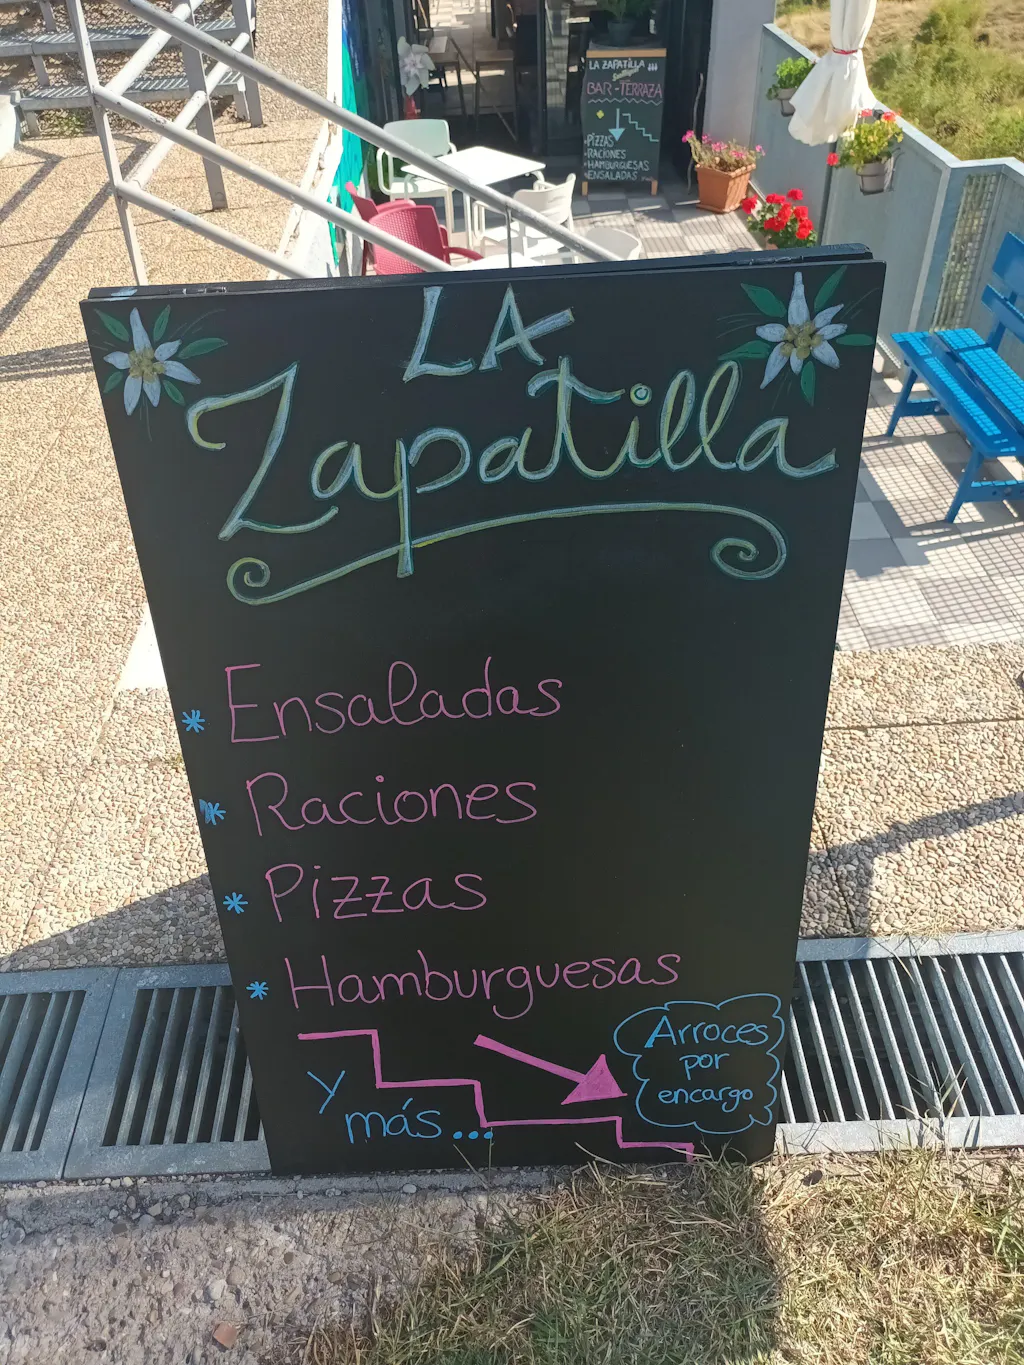 LA ZAPATILLA
BAR - TERRAZA
PIZZAS
RACIONES
HAMBURGUESAS
ENSALADAS
LA
Zapatilla
* Ensaladas
* Raciones
* Pizzas
* Hamburguesas
y
más...
Arroces
por
encargo